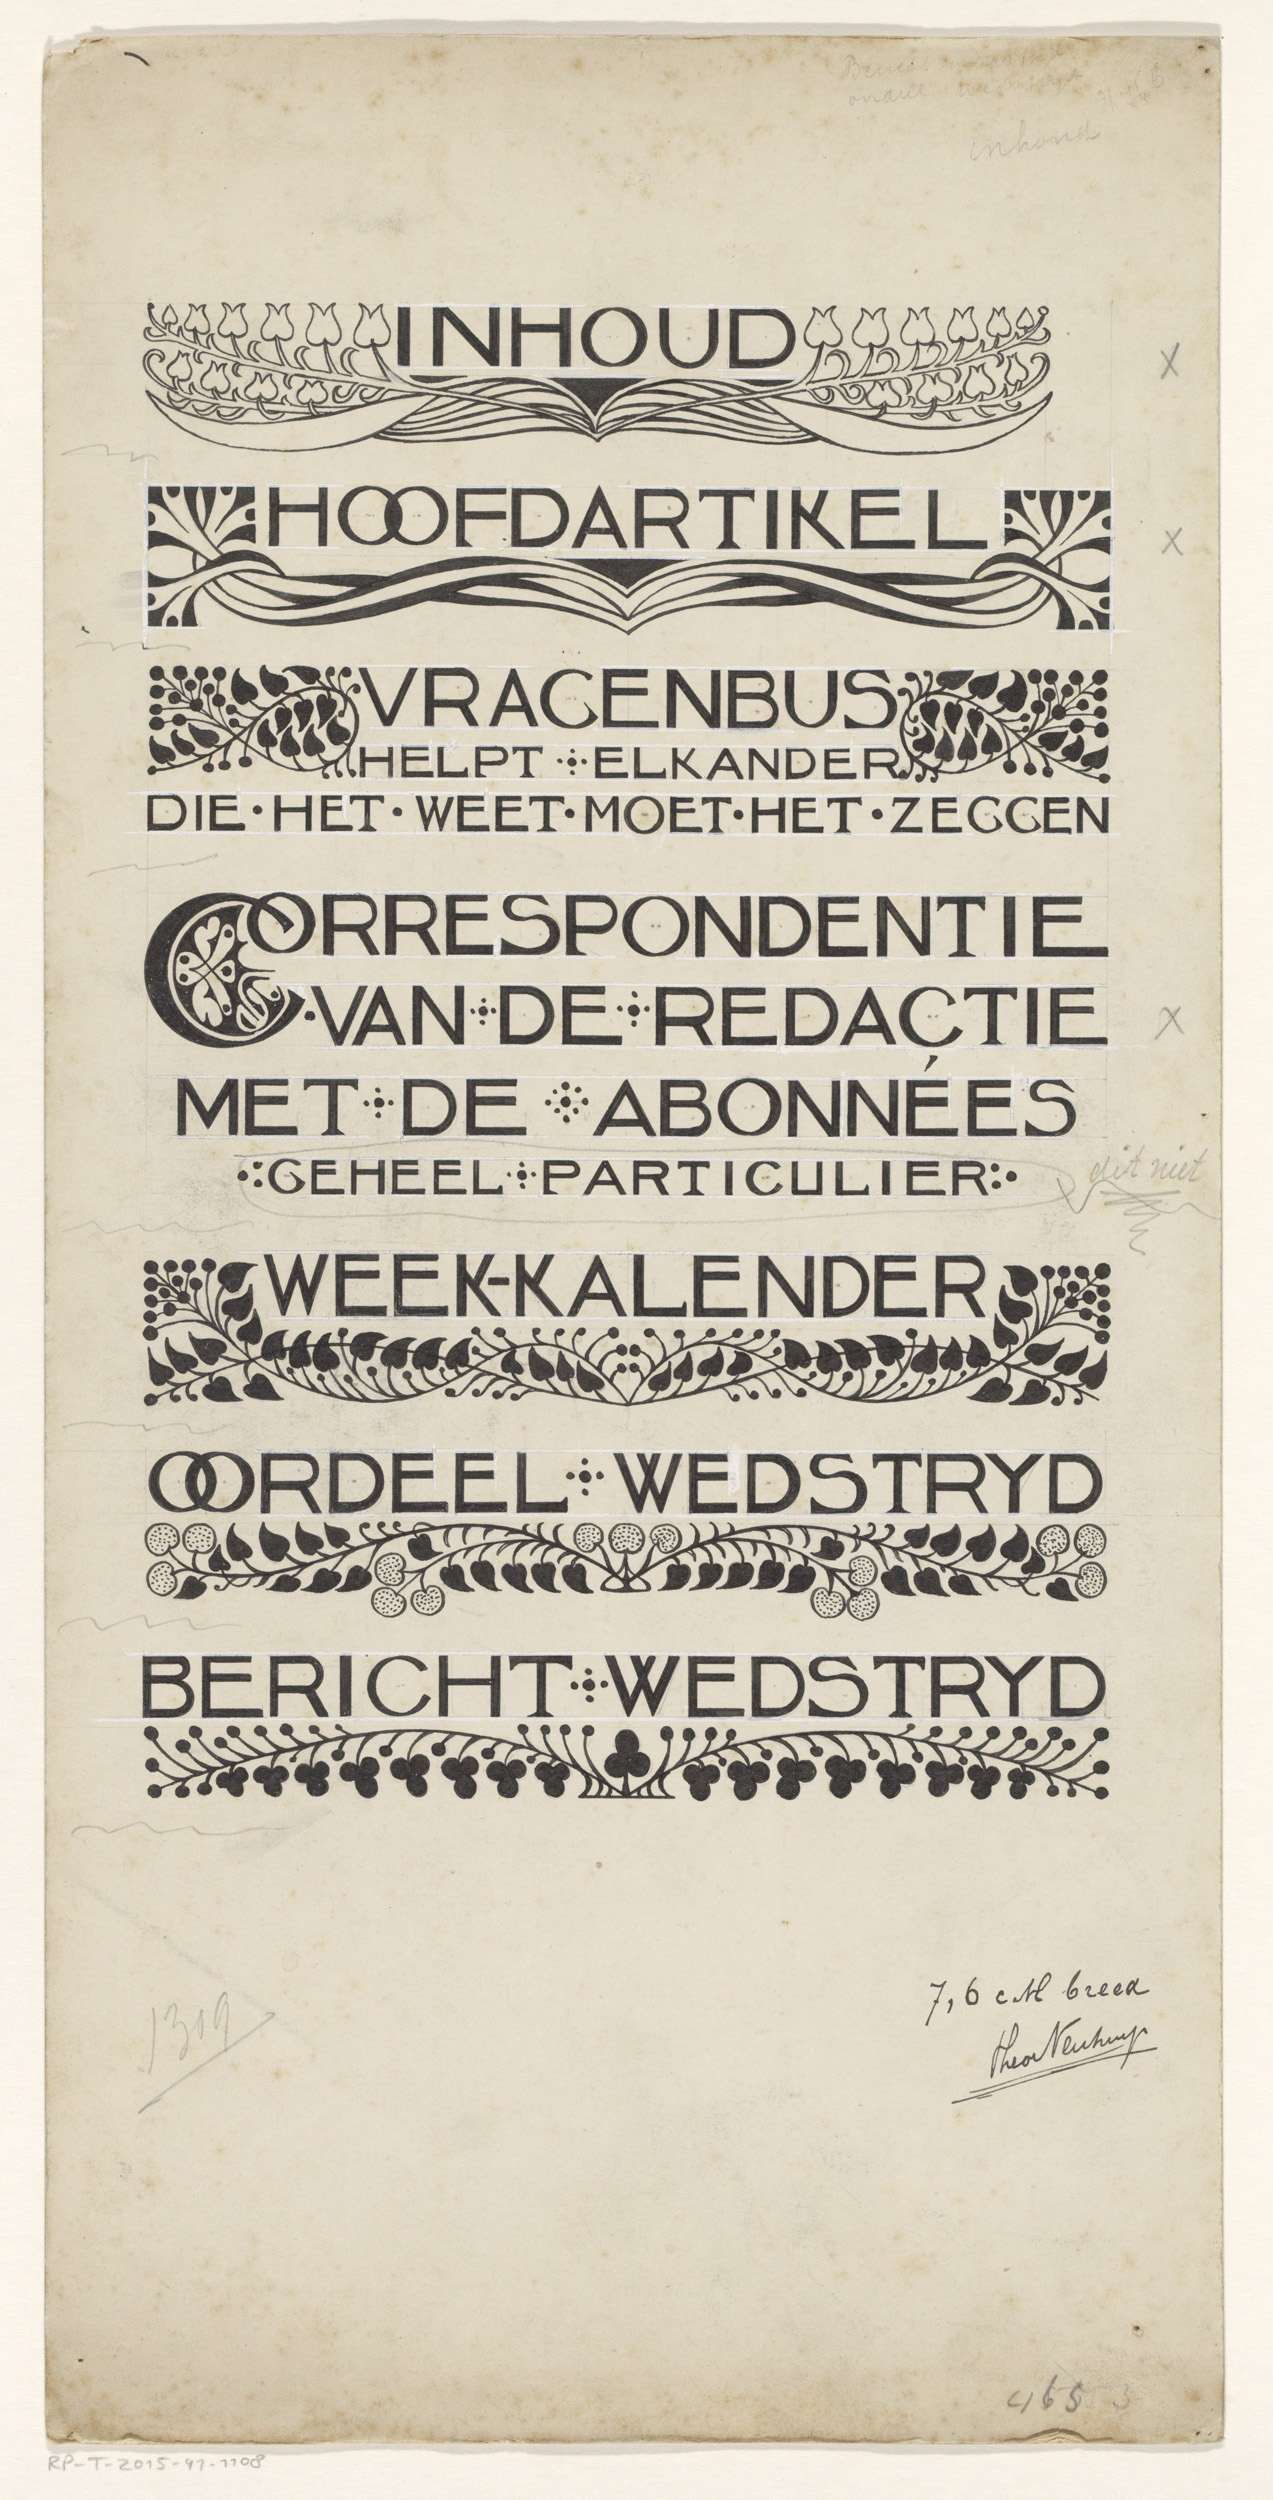 inhoud
INHOUD
X
HOOFDARTIKEL
X
VRAGENBUS
HELPT ELKANDER
DIE · HET · WEET · MOET · HET · ZEGGEN
CORRESPONDENTIE
VAN DE REDACTIE
X
MET DE ABONNÉES
GEHEEL PARTICULIER
dit niet
WEEK-KALENDER
OORDEEL WEDSTRYD
BERICHT WEDSTRYD
7,6 cM breed
1309
Theo Neuhuys
465
RP-T-2015-41-1108